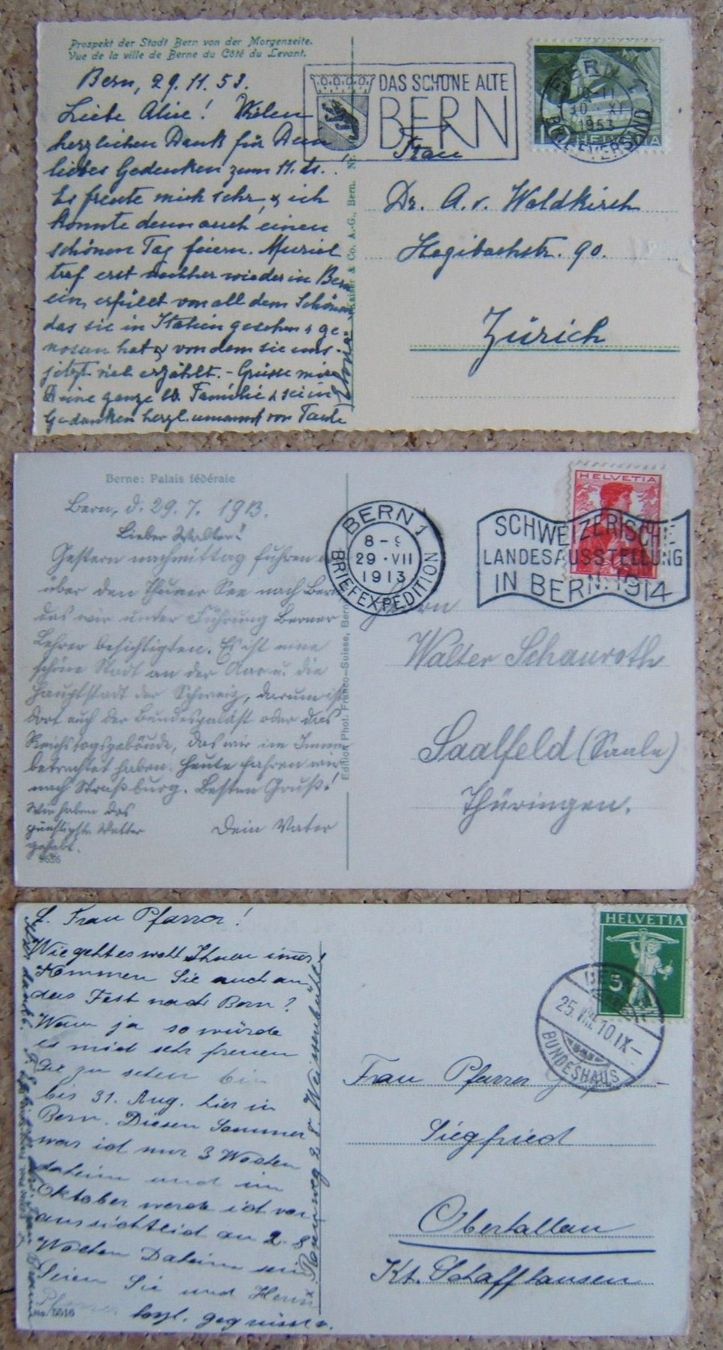 Prospekt der Stadt Bern von der Morgenseite.
Vue de la ville de Berne du Côté du Levant.
Bern, 29.11.53.
Liebe Alice! Vielen
herzlichen Dank für Dein
liebes Gedenken zum 11. ds.
Es freute mich sehr, & ich
konnte denn auch einen
schönen Tag feiern. Muriel
traf erst nachher wieder in Bern
ein, erfüllt von all dem Schönen
das sie in Italien gesehen & ge-
nossen hat & von dem sie uns
jetzt viel erzählt. - Grüsse mir
Deine ganze lb. Familie & sei in
Gedanken herzl. umarmt von Tante
DAS SCHÖNE ALTE
BERN
BRIEFVERSAND
1953
HELVETIA
Frau
Dr. A. v. Waldkirch
Hegibachstr. 90.
Zürich
Berne: Palais fédérale
Bern, d. 29.7.1913.
Lieber Walter!
Gestern nachmittag fuhren
über den Thuner See nach Bern
das wir unter Führung Berner
Lehrer besichtigten. Es ist eine
schöne Stadt an der Aar u. die
Hauptstadt der Schweiz, darum ist
dort auch der Bundespalast oder das
Reichstagsgebäude, das wir im Innern
betrachtet haben. Heute fahren wir
nach Straßburg. Besten Gruß!
Wir haben das
günstigste Wetter
gehabt.
Dein Vater
Edition Phot. Franco-Suisse, Bern
BERN 1
8-9
29·VII
1913
BRIEFEXPEDITION
SCHWEIZERISCHE
LANDESAUSSTELLUNG
IN BERN: 1914
HELVETIA
Herrn
Walter Schauroth
Saalfeld (Saale)
Thüringen.
L. Frau Pfarrer!
Wie geht es wohl Ihnen immer?
Kommen Sie auch an
das Fest nach Bern?
Wenn ja so würde
es mich sehr freuen
Sie zu sehen bin
bis 31. Aug. hier in
Bern. Diesen Sommer
war ich nur 3 Wochen
daheim und im
Oktober werde ich vor
aussichtlich an 2-3
Wochen Daheim sein
Seien Sie und Herrn
herzl. gegrüsst
HELVETIA
5
25.VIII.10.IX-
BUNDESHAUS
Frau Pfarrer
Siegfried
Oberhallau
Kt. Schaffhausen